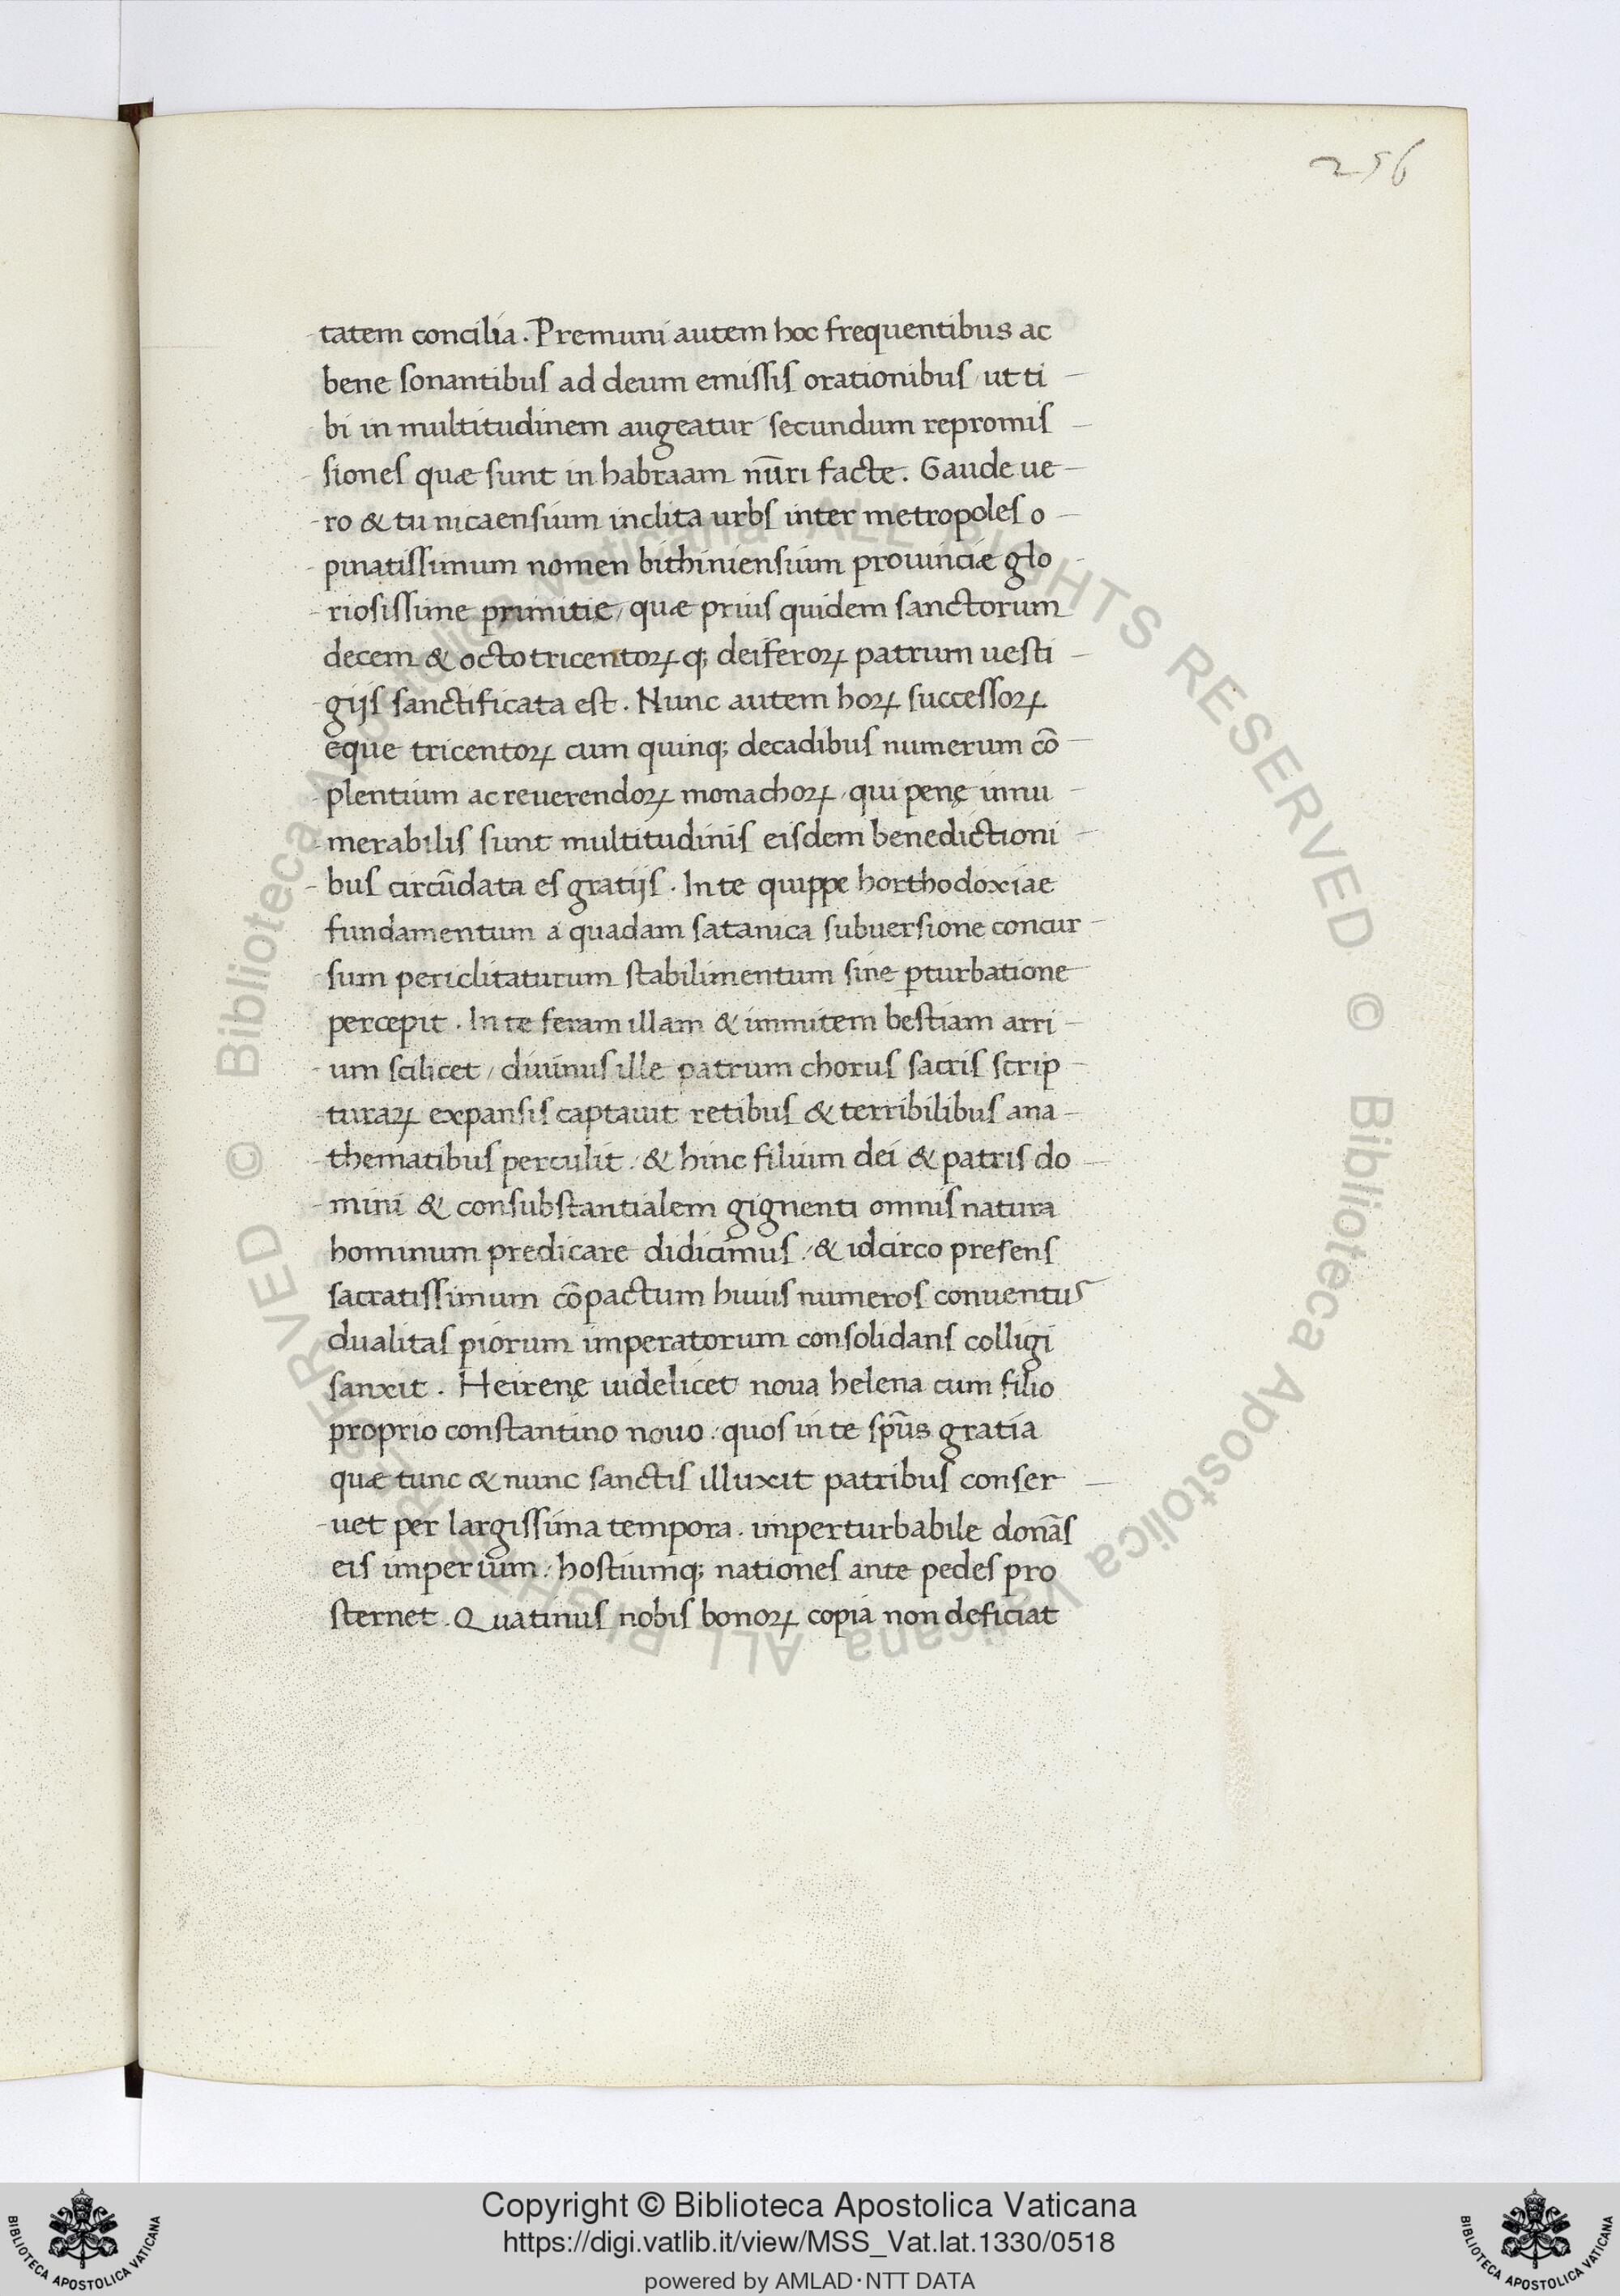 256
tatem concilia. Premuni autem hoc frequentibus ac
bene sonantibus ad deum emissis orationibus / ut ti
bi in multitudinem augeatur secundum repromis
siones quæ sunt in habraam nūri facte. Gaude ue
ro & tu nicaensium inclita urbs inter metropoles o
pinatissimum nomen bithiniensium prouinciæ glo
riosissime primitię / quæ prius quidem sanctorum
decem & octo tricentoꝝ q; deiferoꝝ patrum uesti
gijs sanctificata est. Nunc autem hoꝝ successoꝝ
eque tricentoꝝ cum quinq; decadibus numerum cō
plentium ac reuerendoꝝ monachoꝝ / qui penę innu
merabilis sunt multitudinis eisdem benedictioni
bus circūdata es gratijs. In te quippe horthodoxiae
fundamentum a quadam satanica subuersione concur
sum periclitaturum stabilimentum sine ꝑturbatione
percepit. In te feram illam & immitem bestiam arri
um scilicet / diuinus ille patrum chorus sacris scrip
turaꝝ expansis captauit retibus & terribilibus ana
thematibus perculit. & hinc filium dei & patris do
mini & consubstantialem gignenti omnis natura
hominum predicare didicimus. & idcirco presens
sacratissimum cōpactum huius numeros conuentus
dualitas piorum imperatorum consolidans colligi
sanxit. Heirenę uidelicet noua helena cum filio
proprio constantino nouo. quos in te sp̄us gratia
quæ tunc & nunc sanctis illuxit patribus conser
uet per largissima tempora. imperturbabile donās
eis imperium. hostiumq; nationes ante pedes pro
sternet. Quatinus nobis bonoꝝ copia non deficiat
© Biblioteca Apostolica Vaticana ALL RIGHTS RESERVED © Biblioteca Apostolica Vaticana ALL RIGHTS RESERVED
BIBLIOTECA APOSTOLICA VATICANA
Copyright © Biblioteca Apostolica Vaticana
https://digi.vatlib.it/view/MSS_Vat.lat.1330/0518
powered by AMLAD·NTT DATA
BIBLIOTECA APOSTOLICA VATICANA